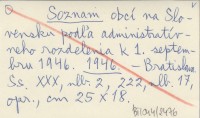 Soznam obcí na Slo-
vensku podľa administratív-
neho rozdelenia k 1. septem-
bru 1946. 1946. - Bratislava
Ss. XXX, nlb. 2, 222, nlb. 17,
opr., cm 25 x 18.